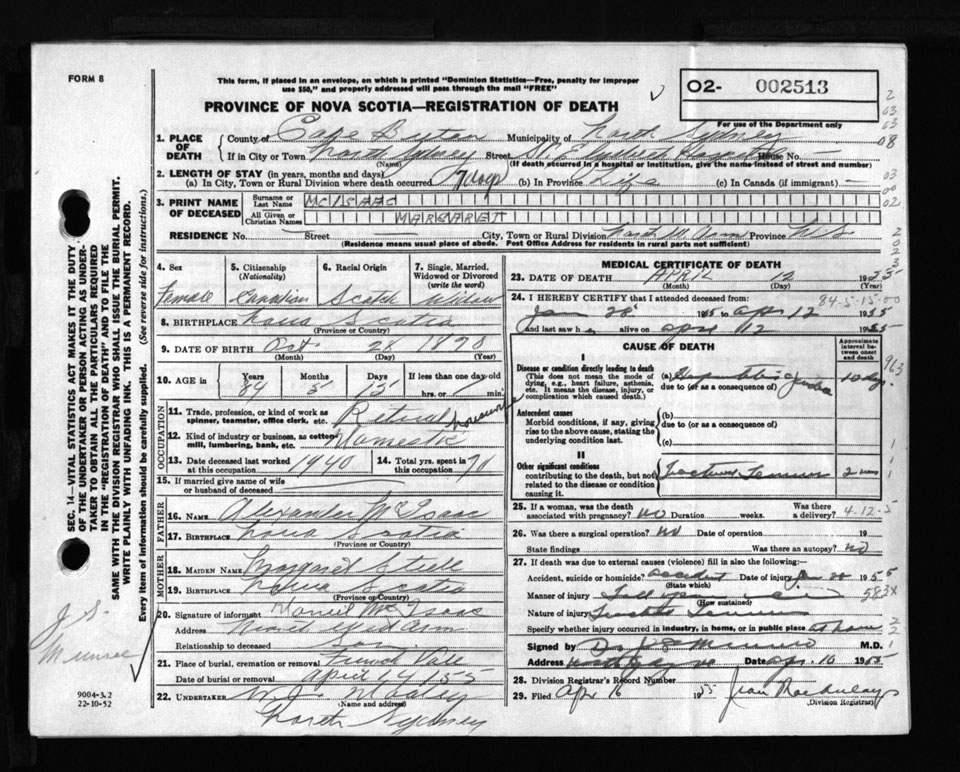 FORM 8
This form, if placed in an envelope, on which is printed "Dominion Statistics—Free, penalty for improper
use $50," and properly addressed will pass through the mail "FREE"
PROVINCE OF NOVA SCOTIA—REGISTRATION OF DEATH
O2- 002513
For use of the Department only
1. PLACE OF DEATH
County of Cape Breton Municipality of North Sydney
If in City or Town North Sydney Street St. Elizabeth Hospital House No. —
(Name) (If death occurred in a hospital or institution, give the name instead of street and number)
2. LENGTH OF STAY (in years, months and days)
(a) In City, Town or Rural Division where death occurred (b) In Province Life (c) In Canada (if immigrant) —
3. PRINT NAME OF DECEASED
Surname or Last Name MCISAAC
All Given or Christian Names MARGARET
RESIDENCE No. Street City, Town or Rural Division Province N.S.
(Residence means usual place of abode. Post Office Address for residents in rural parts not sufficient)
4. Sex Female
5. Citizenship (Nationality) Canadian
6. Racial Origin Scotch
7. Single, Married, Widowed or Divorced (write the word) Widow
8. BIRTHPLACE Nova Scotia
(Province or Country)
9. DATE OF BIRTH Oct 28 1870
(Month) (Day) (Year)
10. AGE in Years 84 Months 5 Days 15 If less than one day old hrs. or min.
OCCUPATION
11. Trade, profession, or kind of work as spinner, teamster, office clerk, etc. Retired
12. Kind of industry or business, as cotton mill, lumbering, bank, etc. Domestic
13. Date deceased last worked at this occupation 1940
14. Total yrs. spent in this occupation 70
15. If married give name of wife or husband of deceased
FATHER
16. NAME Alexander McIsaac
17. BIRTHPLACE Nova Scotia
(Province or Country)
MOTHER
18. MAIDEN NAME Margaret Steele
19. BIRTHPLACE Nova Scotia
(Province or Country)
20. Signature of informant McIsaac
Address
Relationship to deceased son
21. Place of burial, cremation or removal French Vale
Date of burial or removal April 14/55
22. UNDERTAKER
(Name and Address)
North Sydney
MEDICAL CERTIFICATE OF DEATH
23. DATE OF DEATH APRIL 12 1955
(Month) (Day)
24. I HEREBY CERTIFY that I attended deceased from: 84-5-15-00
Jan 28 1955 to apr 12 1955
and last saw h alive on apr 12 1955
CAUSE OF DEATH
Approximate interval between onset and death
I
Disease or condition directly leading to death
(This does not mean the mode of dying, e.g., heart failure, asthenia, etc. It means the disease, injury, or complication which caused death.)
(a) 10 days
due to (or as a consequence of)
Antecedent causes
Morbid conditions, if any, giving rise to the above cause, stating the underlying condition last.
(b)
due to (or as a consequence of)
(c)
II
Other significant conditions
contributing to the death, but not related to the disease or condition causing it.
Fractured Femur
25. If a woman, was the death associated with pregnancy? NO Duration weeks. Was there a delivery? 4-12-5
26. Was there a surgical operation? NO Date of operation 19
State findings Was there an autopsy? NO
27. If death was due to external causes (violence) fill in also the following:
Accident, suicide or homicide? accident Date of injury Jan 28 1955
(State which)
Manner of injury
(How sustained)
583X
Nature of injury Fractured Femur
Specify whether injury occurred in industry, in home, or in public place at home
Signed by M.D.
Address Date Apr. 16 1955
28. Division Registrar's Record Number
29. Filed Apr 16 1955
(Division Registrar)
SEC. 14—VITAL STATISTICS ACT MAKES IT THE DUTY
OF THE UNDERTAKER OR PERSON ACTING AS UNDER-
TAKER TO OBTAIN ALL THE PARTICULARS REQUIRED
IN THE "REGISTRATION OF DEATH" AND TO FILE THE
SAME WITH THE DIVISION REGISTRAR WHO SHALL ISSUE THE BURIAL PERMIT.
WRITE PLAINLY WITH UNFADING INK. THIS IS A PERMANENT RECORD.
Every item of information should be carefully supplied. (See reverse side for instructions.)
9004-3.2
22-10-52